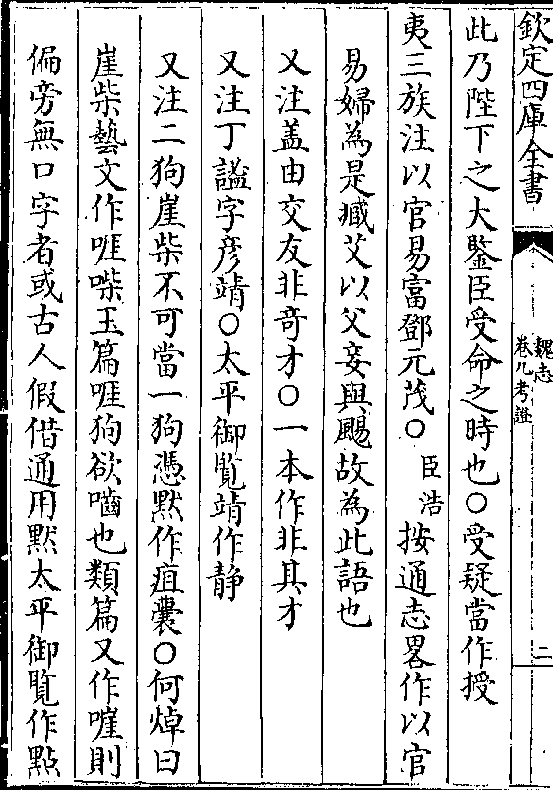 欽定四庫全書
魏志
卷九考證
二
此乃陛下之大鑒臣受命之時也○受疑當作授
夷三族注以官易富鄧元茂○臣浩按通志畧作以官
易婦為是臧艾以父妾與颺故為此語也
又注盖由交友非竒才○一本作非其才
又注丁謐字彦靖○太平御覽靖作静
又注二狗崖柴不可當一狗憑默作疽囊○何焯曰
崖柴藝文作啀㗫玉篇啀狗欲嚙也類篇又作嘊則
偏旁無口字者或古人假借通用默太平御覽作點